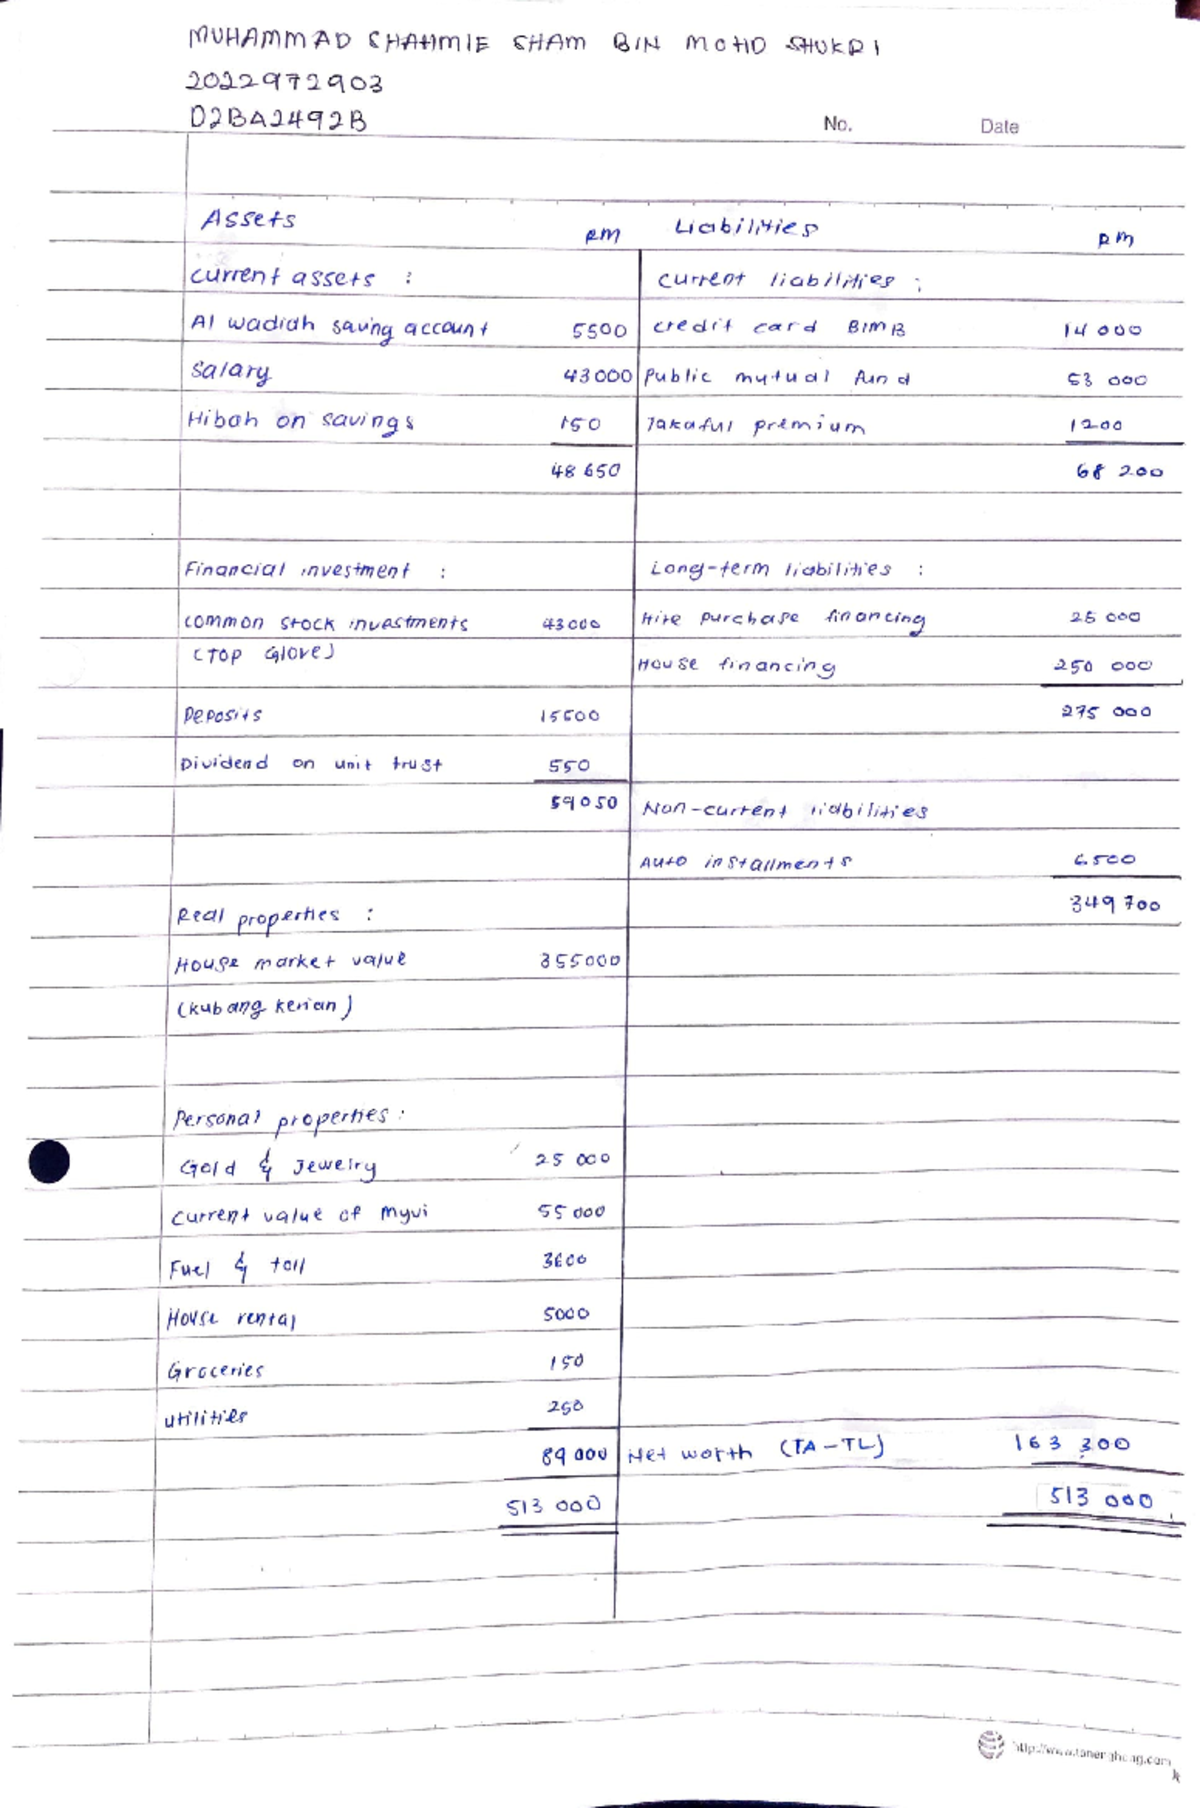 MUHAMMAD SHAHMIE SHAM BIN MOHD SHUKRI
2022972903
D2BA2492B
No. Date
Assets RM Liabilities RM
Current assets : Current liabilities :
Al wadiah saving account 5500 Credit card BIMB 14 000
Salary 43000 Public mutual fund 53 000
Hibah on savings 150 Takaful premium 1200
48 650 68 200
Financial investment : Long-term liabilities :
Common stock investments 43000 Hire purchase financing 25 000
(TOP Glove) House financing 250 000
Deposits 15500 275 000
Dividend on unit trust 550
59050 Non-current liabilities
Auto installments 6500
Real properties : 349 700
House market value 355000
(Kubang kerian)
Personal properties :
Gold & Jewelry 25 000
Current value of Myvi 55 000
Fuel & toll 3600
House rental 5000
Groceries 150
utilities 250
89 000 Net worth (TA-TL) 163 300
513 000 513 000